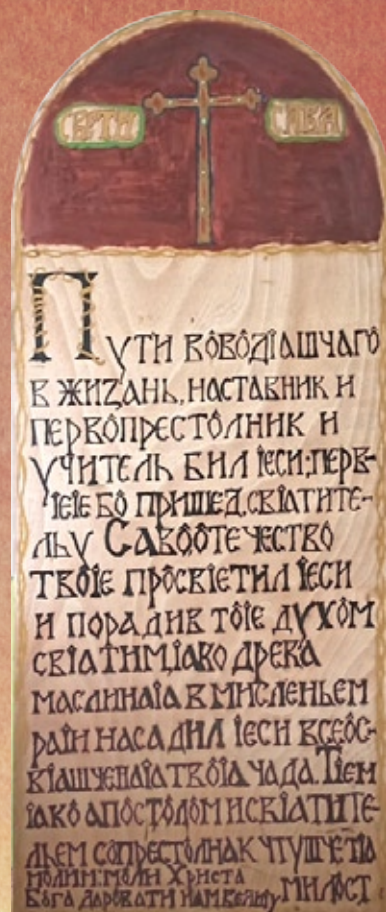 СВЕТИ САВА
Пути вовôдіашчаго
в жизань, наставник и
первопрестôлник и
учитељ бил іеси: перв-
іеіе бô пришед, свіатите-
љу Савôôтечество
твôіе прôсвіетил іеси
и порадив тôіе духôм
свіатим, іако древа
маслинаіа в мисленьем
раіи насадил іеси всеôс-
віашченаіа твôіа чада. Тіем
іако апостôлôм и свіатите-
љем сопрестôлнак чтушче тіа
мôлим: мôли Христа
Бога даровати нам велију милост